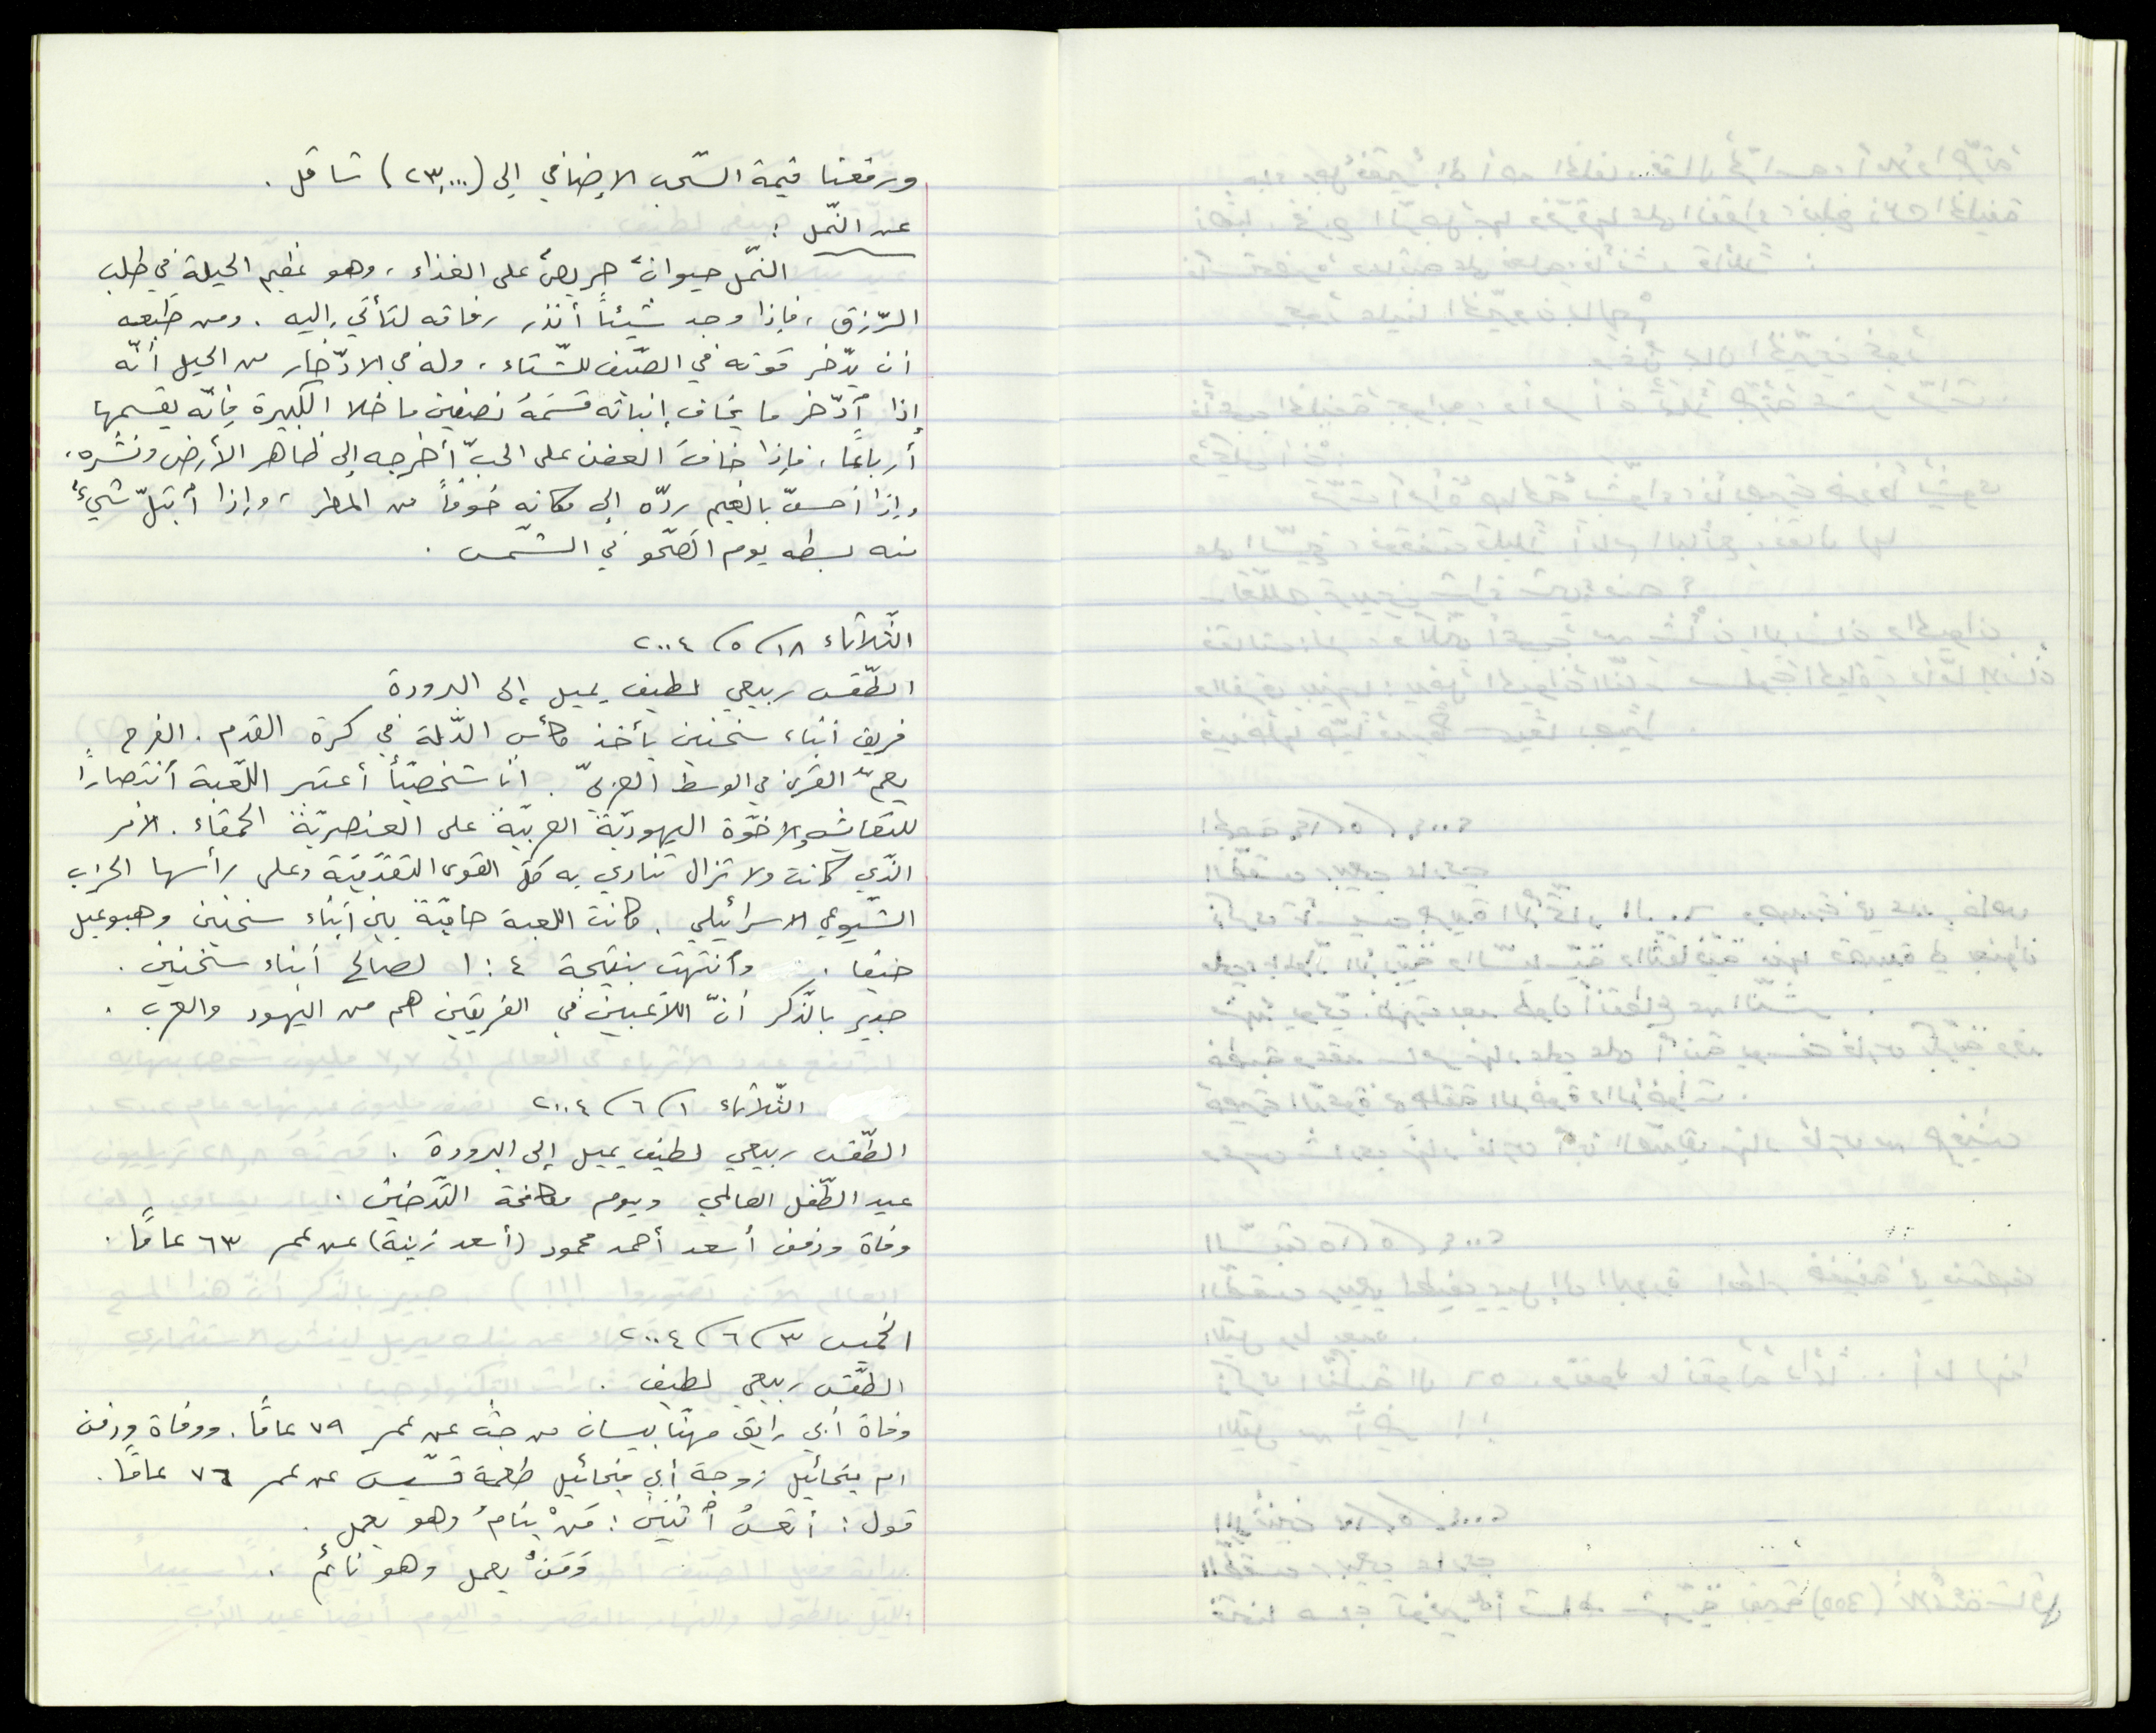 ورفعنا قيمة السّحب الإضافي إلى (٢٣,٠٠٠) شاقل .
عن النّمل :
النّمل حيوانٌ حريصٌ على الغذاء ، وهو عظيم الحيلة في طلب
الرّزق ، فإذا وجد شيئاً أنذر رفاقه لتأتي إليه . ومن طبعه
أن يدّخر قوته في الصّيف للشّتاء ، وله في الادّخار من الحيل أنّه
إذا ٱدّخر ما يخاف إنباته قسَمَهُ نصفين ما خلا الكبيرة فإنّه يقسمها
أرباعًا ، فإذا خاف العفن على الحبّ أخرجه إلى ظاهر الأرض ونشره ،
وإذا أحسّ بالغيم ردّه إلى مكانه خوفاً من المطر ، وإذا ٱبتلّ شيءٌ
منه بسطه يوم الصّحو في الشّمس .
الثّلاثاء ١٨/ ٥/ ٢٠٠٤
الطّقس ربيعي لطيف يميل إلى البرودة
فريق أبناء سخنين يأخذ كأس الدّولة في كرة القدم . الفرح
يعمّ القرى في الوسط العربيّ . أنا شخصيّاً أعتبر اللّعبة ٱنتصارًا
للتعايش والاخوّة اليهوديّة العربيّة على العنصريّة الحمقاء . الأمر
الّذي كانت ولا تزال تنادي به كلّ القوى التقدّميّة وعلى رأسها الحزب
الشّيوعي الاسرائيلي . كانت اللعبة حاميّة بين أبناء سخنين وهبوعيل
حيفا . وٱنتهت بنتيجة ٤ : ١ لصالح أبناء سخنين .
جدير بالذّكر أنّ اللاّعبين في الفريقين هم من اليهود والعرب .
الثّلاثاء ١/ ٦/ ٢٠٠٤
الطّقس ربيعي لطيف يميل إلى البرودة .
عيد الطّفل العالمي ويوم مكافحة التّدخين .
وفاة ودفن أسعد أحمد محمود (أسعد زينة) عن عمر ٦٣ عامًا .
الخميس ٣/ ٦/ ٢٠٠٤
الطّقس ربيعي لطيف .
وفاة أبي رايق مهنّا بيسان من جث عن عمر ٧٩ عامًا . ووفاة ودفن
ام ميخائيل زوجة أبي ميخائيل طعمة قسّيس عن عمر ٧٦ عامًا .
قول : أتعسُ ٱثنين : مَنْ ينامُ وهو يعمل .
وَمَنْ يعمل وهو نائم .